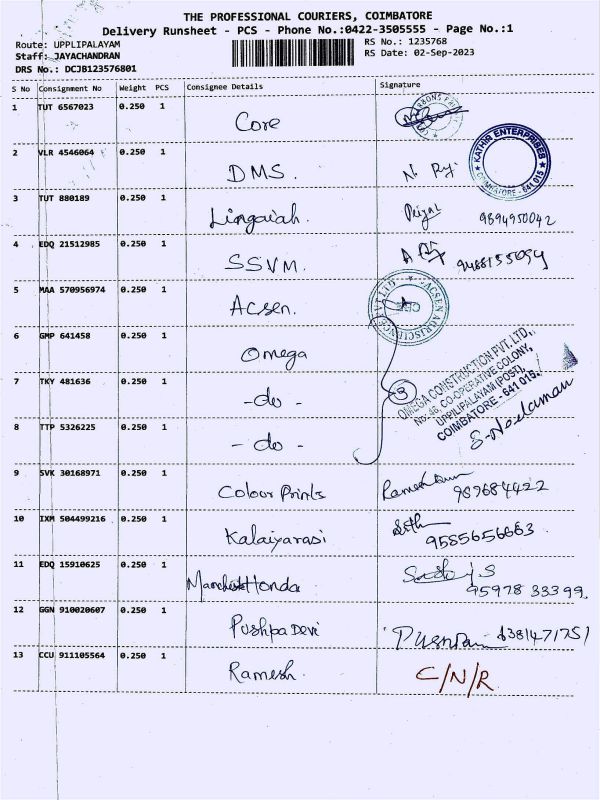 THE PROFESSIONAL COURIERS, COIMBATORE
Delivery Runsheet - PCS - Phone No.:0422-3505555 - Page No.:1
Route: UPPLIPALAYAM RS No.: 1235768
Staff: JAYACHANDRAN RS Date: 02-Sep-2023
DRS No.: DCJB123576801
S No Consignment No Weight PCS Consignee Details Signature
1 TUT 6567023 0.250 1 Core
2 VLR 4546064 0.250 1 DMS. KATHIR ENTERPRISES COIMBATORE - 641 015
3 TUT 880189 0.250 1 Lingaiah. 9894950042
4 EDQ 21512985 0.250 1 SSVM. 9488155094
5 MAA 570956974 0.250 1 Acsen. ACSEN AGRISCIENCE PVT LTD
6 GMP 641458 0.250 1 Omega
OMEGA CONSTRUCTION PVT. LTD.,
No: 46, CO-OPERATIVE COLONY,
UPPILIPALAYAM (POST),
COIMBATORE - 641 015.
7 TKY 481636 0.250 1 - do - 3
8 TTP 5326225 0.250 1 - do -
9 SVK 30168971 0.250 1 Colour Prints 989684422
10 IXM 504499216 0.250 1 Kalaiyarasi 9585656663
11 EDQ 15910625 0.250 1 Honda 95978 33399.
12 GGN 910020607 0.250 1 Pushpa Devi 6381471751
13 CCU 911105564 0.250 1 Ramesh. C/N/R